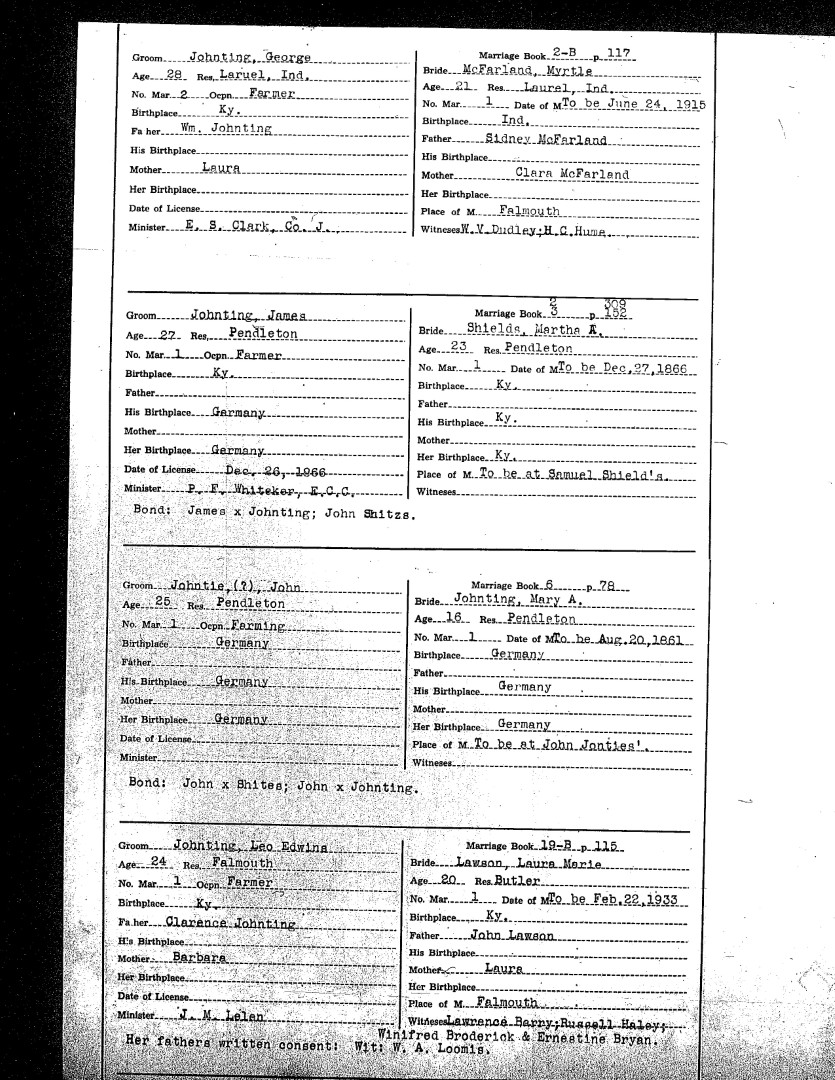 Groom Johnting, George
Age 28 Res. Laruel, Ind.
No. Mar. 2 Ocpn. Farmer
Birthplace Ky.
Fa her Wm. Johnting
His Birthplace
Mother Laura
Her Birthplace
Date of License
Minister E. S. Clark, Co. J.
Marriage Book 2-B p 117
Bride McFarland, Myrtle
Age 21 Res. Laurel, Ind.
No. Mar. 1 Date of M To be June 24, 1915
Birthplace Ind.
Father Sidney McFarland
His Birthplace
Mother Clara McFarland
Her Birthplace
Place of M. Falmouth
Witneses W.V.Dudley;H.C.Hume.
Groom Johnting, James
Age 27 Res. Pendleton
No. Mar. 1 Ocpn. Farmer
Birthplace Ky.
Father
His Birthplace Germany
Mother
Her Birthplace Germany
Date of License Dec. 26, 1866
Minister P. F. Whiteker, E.C.C.
Bond: James x Johnting; John Shitzs.
2 309
Marriage Book 3 p 152
Bride Shields, Martha E.
Age 23 Res. Pendleton
No. Mar. 1 Date of M To be Dec,27,1866
Birthplace Ky.
Father
His Birthplace Ky.
Mother
Her Birthplace Ky.
Place of M. To be at Samuel Shield's.
Witneses
Groom Johntie,(?), John
Age 25 Res. Pendleton
No. Mar. 1 Ocpn. Farming
Birthplace Germany
Father
His Birthplace Germany
Mother
Her Birthplace Germany
Date of License
Minister
Bond: John x Shites; John x Johnting.
Marriage Book 6 p 78
Bride Johnting, Mary A.
Age 16 Res. Pendleton
No. Mar. 1 Date of M To be Aug.20,1861
Birthplace Germany
Father
His Birthplace Germany
Mother
Her Birthplace Germany
Place of M. To be at John Jonties'.
Witneses
Groom Johnting, Leo Edwins
Age 24 Res. Falmouth
No. Mar. 1 Ocpn. Farmer
Birthplace Ky.
Fa her Clarence Johnting
His Birthplace
Mother Barbara
Her Birthplace
Date of License
Minister J. M. Lelan
Marriage Book 19-B p 115
Bride Lawson, Laura Marie
Age 20 Res. Butler
No. Mar. 1 Date of M To be Feb.22,1933
Birthplace Ky.
Father John Lawson
His Birthplace
Mother Laura
Her Birthplace
Place of M. Falmouth
Witneses Lawrence Barry;Russell Haley;
Winifred Broderick & Ernestine Bryan.
Her fathers written consent: Wit: W. A. Loomis.